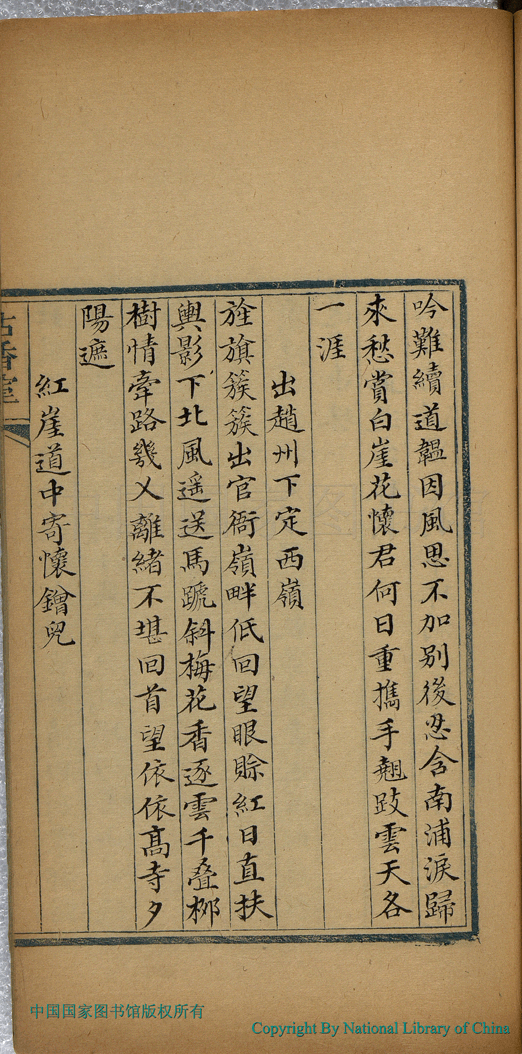 吟難續道韞因風思不加别後忍含南浦淚歸
來愁賞白崖花懷君何日重攜手翹跂雲天各
一涯
出趙州下定西嶺
旌旗簇簇出官衙嶺畔低回望眼賒紅日直扶
輿影下北風遥送馬蹏斜梅花香逐雲千叠桞
樹情牽路幾乂離緒不堪回首望依依髙寺夕
陽遮
紅崖道中寄懷鐕兒
中国国家图书馆版权所有
Copyright By National Library of China